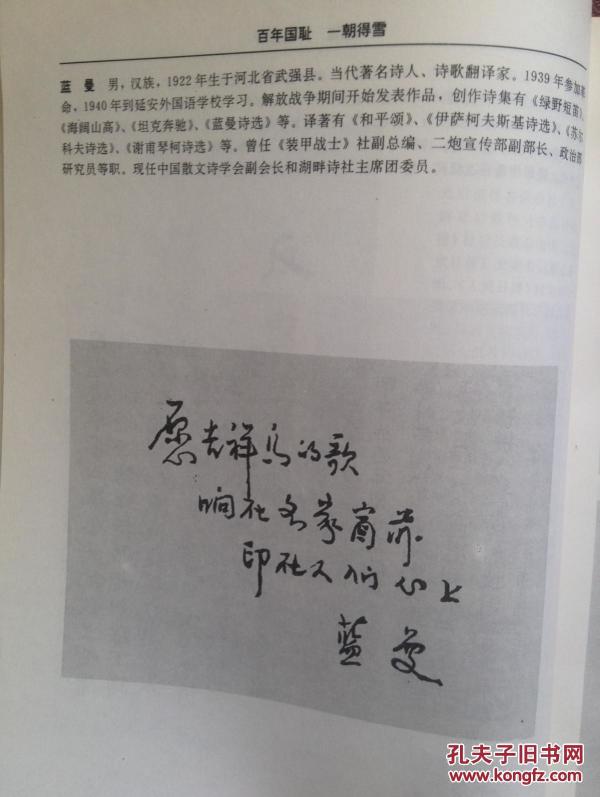 百年国耻 一朝得雪
蓝曼 男，汉族，1922年生于河北省武强县。当代著名诗人、诗歌翻译家。1939年参加革
命，1940年到延安外国语学校学习。解放战争期间开始发表作品，创作诗集有《绿野短笛》、
《海阔山高》、《坦克奔驰》、《蓝曼诗选》等。译著有《和平颂》、《伊萨柯夫斯基诗选》、《苏尔
科夫诗选》、《谢甫琴柯诗选》等。曾任《装甲战士》社副总编、二炮宣传部副部长、政治部
研究员等职。现任中国散文诗学会副会长和湖畔诗社主席团委员。
愿吉祥鸟的歌
响在各家窗前
印在人们心上
蓝曼
孔夫子旧书网
www.kongfz.com